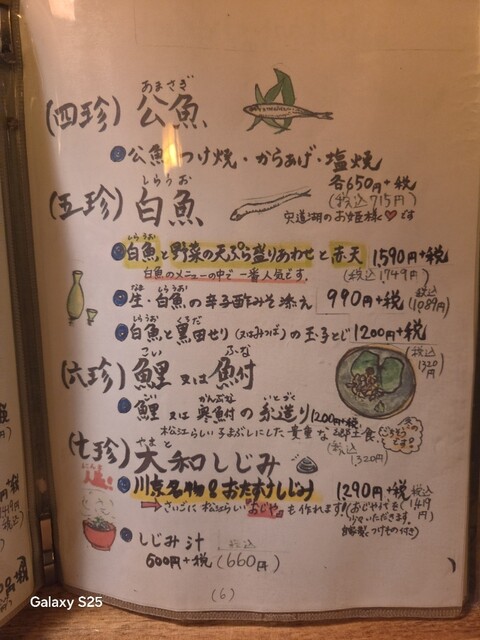 あまさぎ
(四珍) 公魚
公魚つけ焼・からあげ・塩焼
各650円+税
(税込715円)
しらうお
(五珍) 白魚
宍道湖のお姫様♥です
しらうお
白魚と野菜の天ぷら盛りあわせと赤天 1590円+税
白魚のメニューの中で一番人気です。
(税込1,749円)
なま しらうお
生・白魚の辛子酢みそ添え 990円+税 (税込1,089円)
しらうお くろだ
白魚と黒田せり(又はみつば)の玉子とじ 1200円+税
(税込1320円)
こい ふな
(六珍) 鯉 又は 鮒
こい かんぶな いとづく
鯉 又は 寒鮒の糸造り 1200円+税
松江らしい子まぶしにした貴重な郷土食
ごちそうです!!
(税込1,320円)
やまと
(七珍) 大和しじみ
川京名物 おたすけしじみ 1290円+税 税込1419円
さいごに松江らしい"おじや"も作れます!!(おじや代を少々いただきます。
自家製つけもの付き)
しじみ汁 税込
600円+税 (660円)
(6)
Galaxy S25